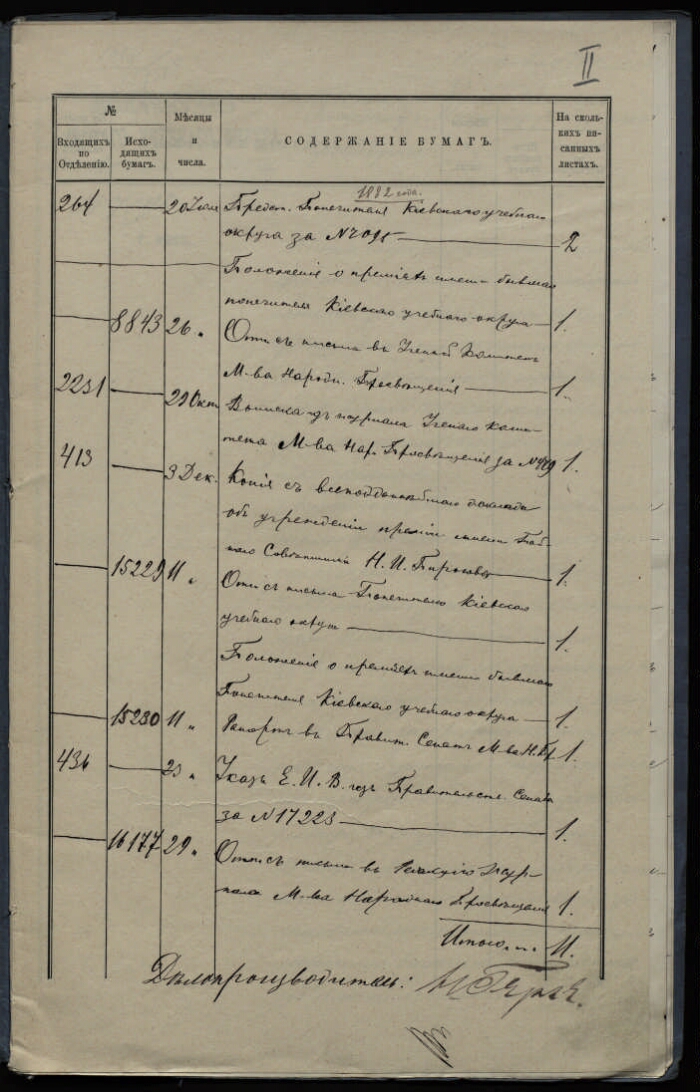 II
№
Входящихъ
по
Отдѣленію.
Исхо-
дящихъ
бумагъ.
Мѣсяцы
и
числа.
СОДЕРЖАНІЕ БУМАГЪ.
На сколь-
кихъ пи-
санныхъ
листахъ.
1882 года.
264 20 Іюля Предст. Попечителя Кіевскаго учебнаго
округа за № 7095 2
Положеніе о преміяхъ имени бывшаго
попечителя Кіевскаго учебнаго округа 1.
8843 26 „ Отпускъ письма въ Ученый Комитетъ
М-ва Народн. Просвѣщенія 1.
2231 29 Окт. Выписка изъ журнала Ученаго Коми-
тета М-ва Нар. Просвѣщенія за № 1.
413 3 Дек. Копія съ всеподданнѣйшаго доклада
объ учрежденіи преміи имени Тай-
наго Совѣтника Н. И. Пирогова 1.
15229 11 „ Отпускъ письма Попечителю Кіевскаго
учебнаго округа 1.
Положеніе о преміяхъ имени бывшаго
Попечителя Кіевскаго учебнаго округа 1.
15230 11 „ Рапортъ въ Правит. Сенатъ М-ва Н. Пр. 1.
436 23 „ Указъ Е. И. В. изъ Правительств. Сената
за № 17223 1.
16177 29 „ Отпускъ письма въ Редакцію Жур-
нала М-ва Народнаго Просвѣщенія 1.
Итого.... 11.
Дѣлопроизводитель: